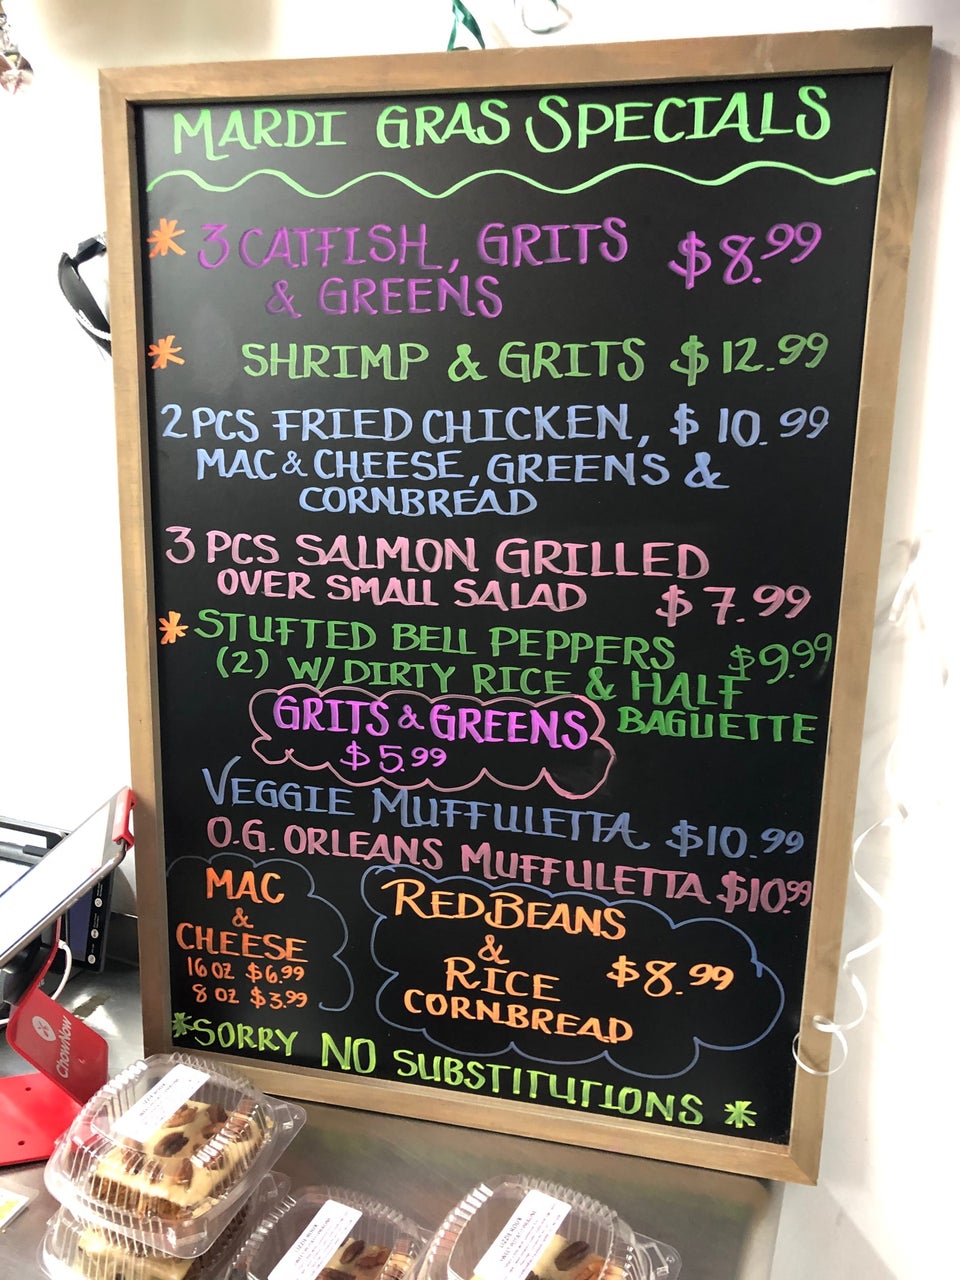 MARDI GRAS SPECIALS
* 3 CATFISH, GRITS $8.99
& GREENS
* SHRIMP & GRITS $12.99
2 PCS FRIED CHICKEN, $10.99
MAC & CHEESE, GREENS &
CORNBREAD
3 PCS SALMON GRILLED
OVER SMALL SALAD $7.99
* STUFTED BELL PEPPERS $9.99
(2) W/ DIRTY RICE & HALF
BAGUETTE
GRITS & GREENS
$5.99
VEGGIE MUFFULETTA $10.99
O.G. ORLEANS MUFFULETTA $10.99
MAC
&
CHEESE
16 OZ $6.99
8 OZ $3.99
RED BEANS
&
RICE $8.99
CORNBREAD
*SORRY NO SUBSTITUTIONS *
ChowNow